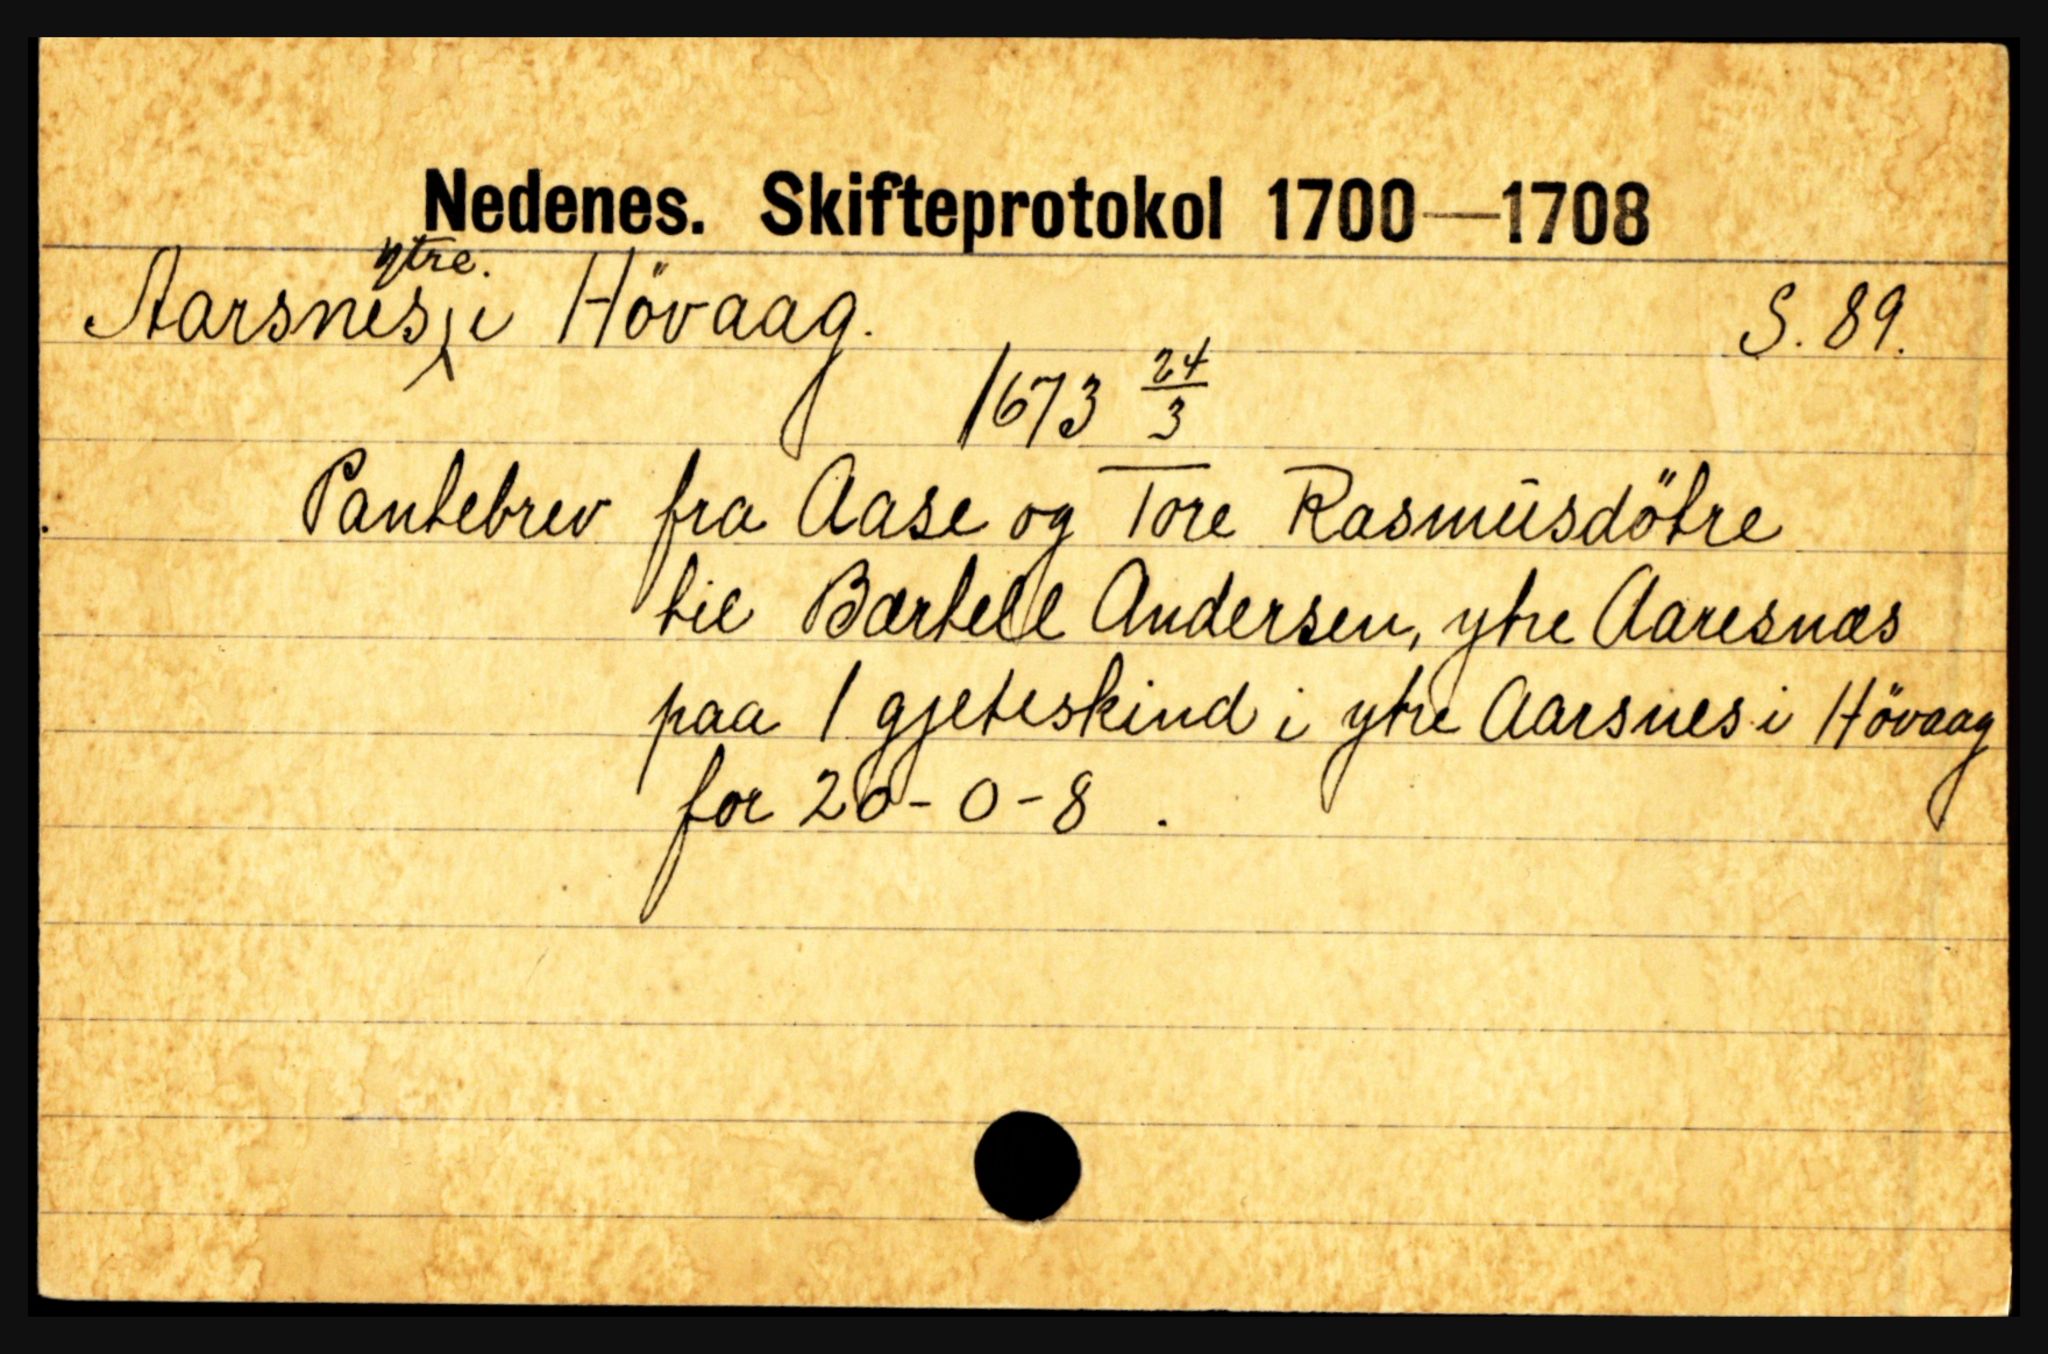 Nedenes. Skifteprotokol 1700—1708
Aarsnes, ytre. i Hövaag. S. 89.
1673 24/3
Pantebrev fra Aase og Tore Rasmusdötre
til Bærtell Andersen, ytre Aaresnæs
paa 1 gjeteskind i ytre Aarsnes i Hövaag
for 20-0-8.